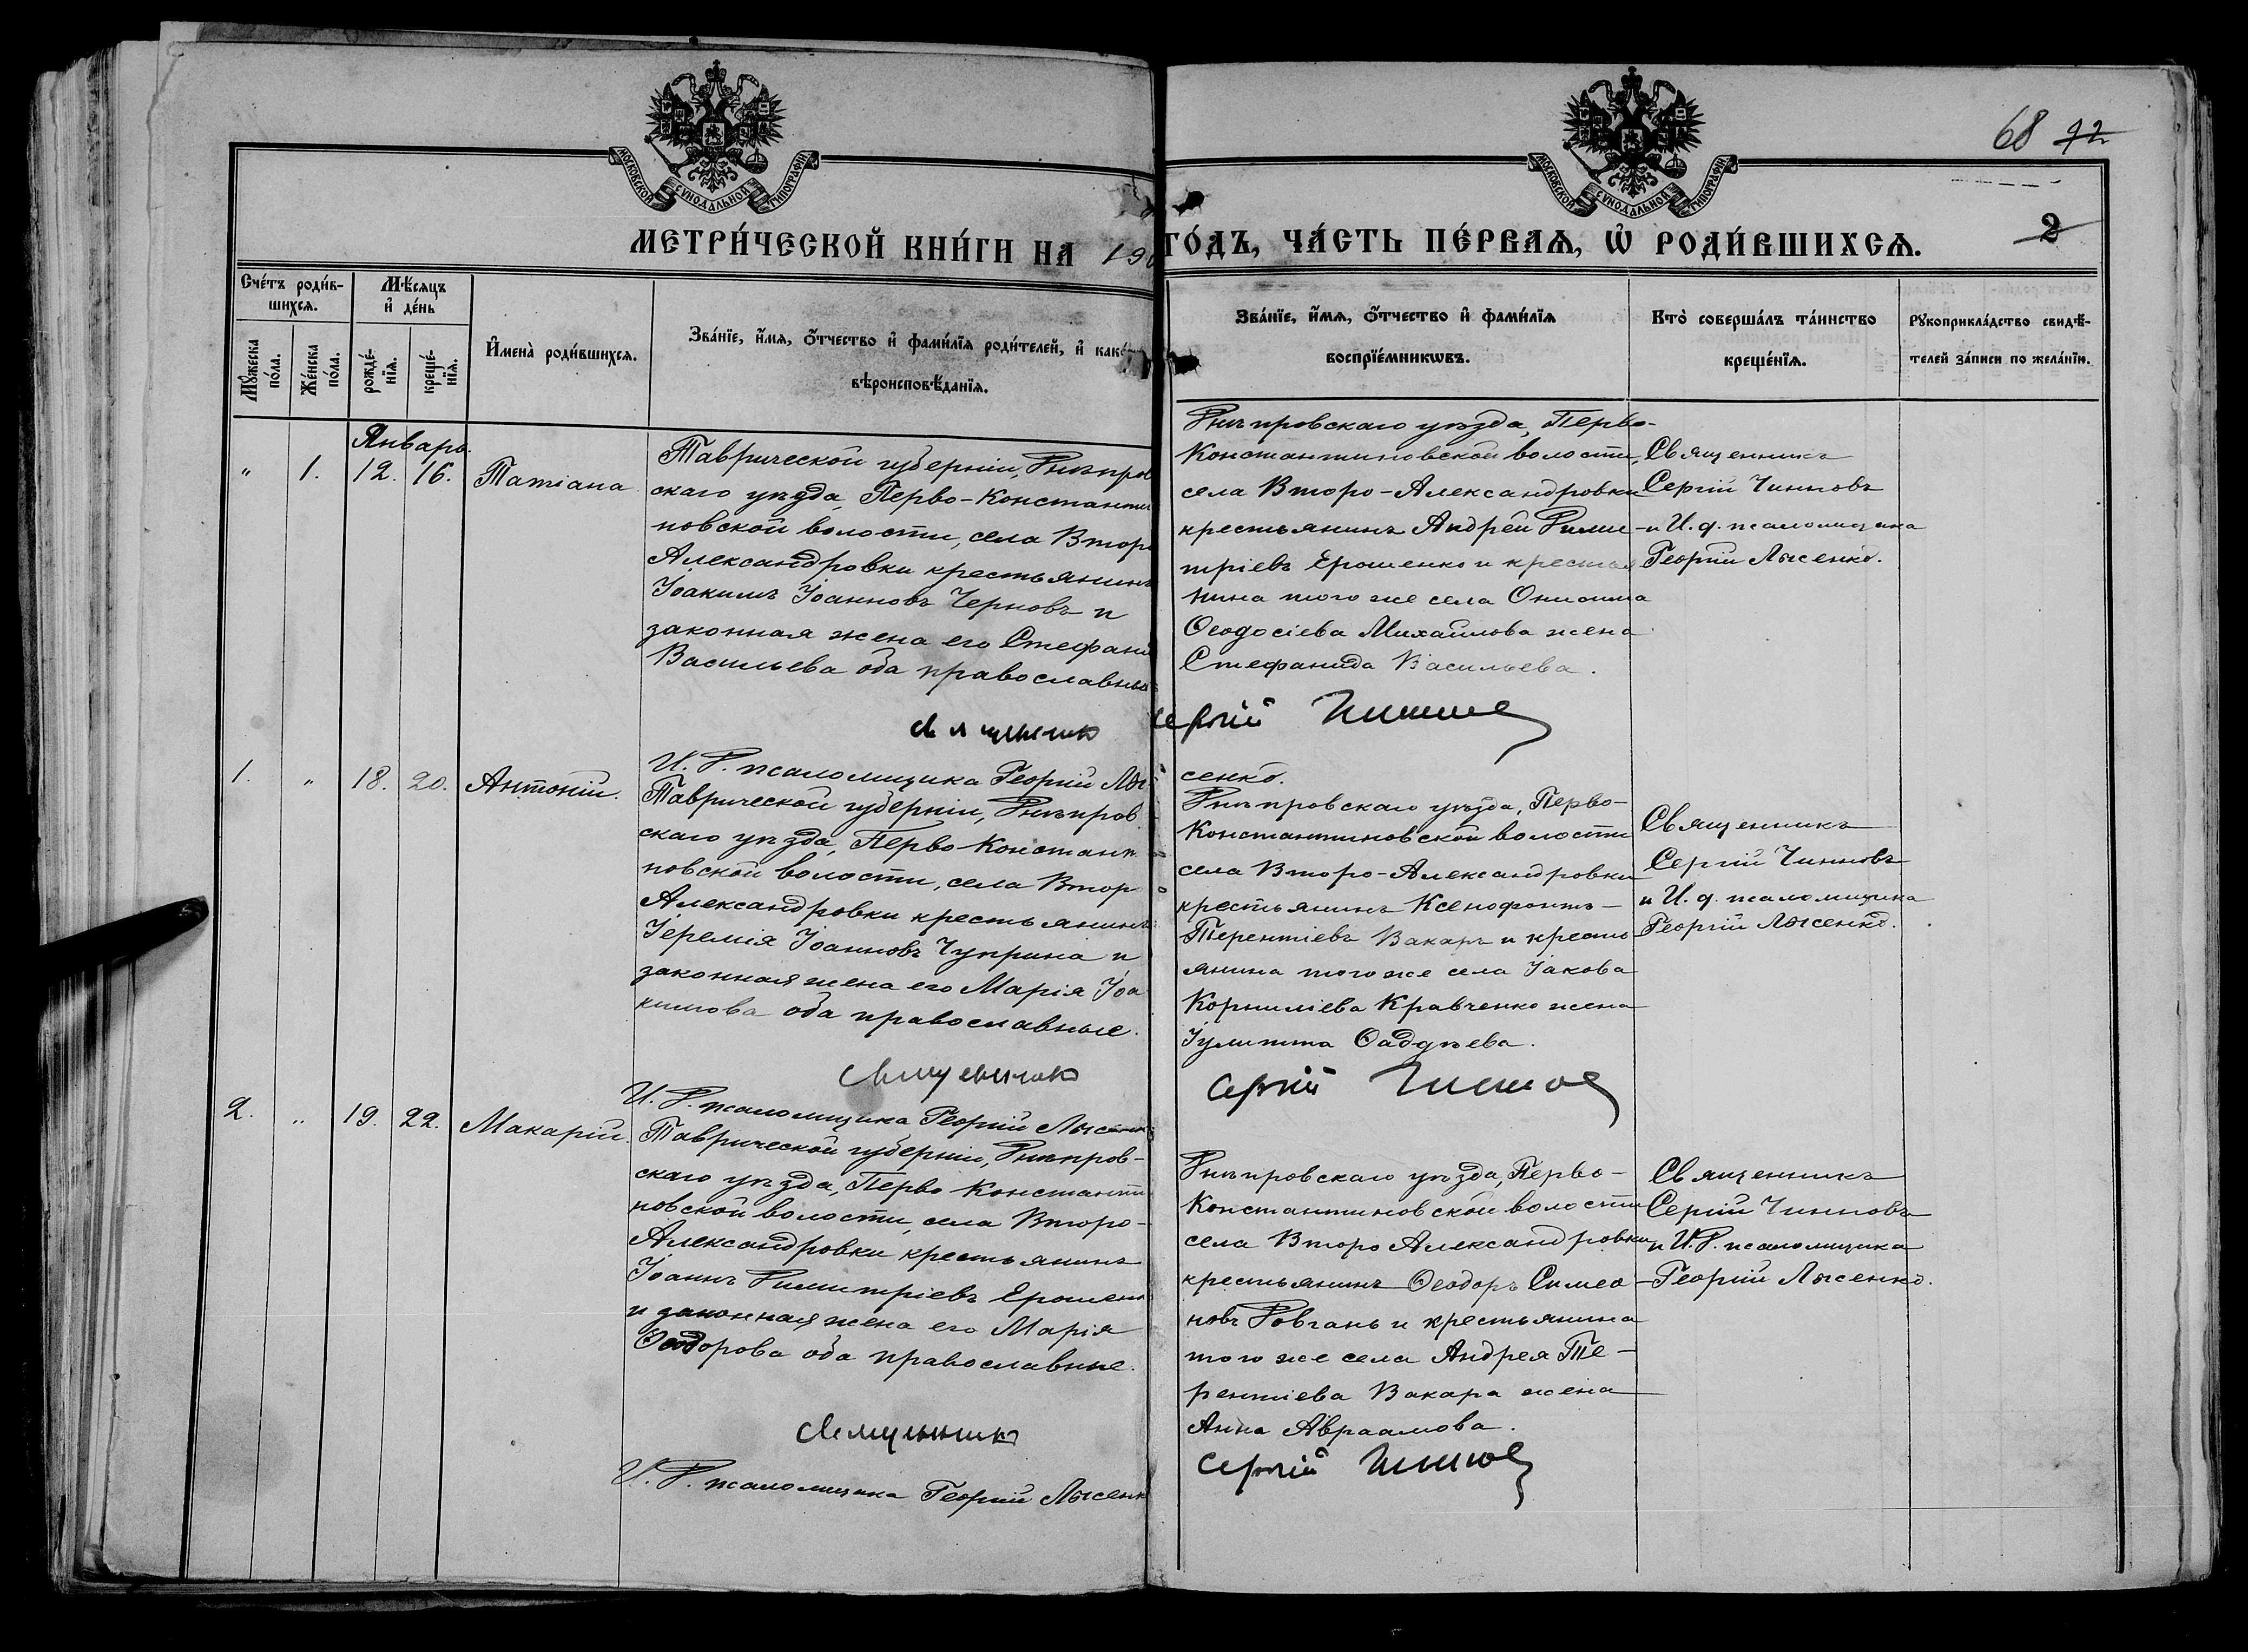 МОСКОВСКОЙ СУНОДАЛЬНОЙ ТИПОГРАФІИ
МОСКОВСКОЙ СУНОДАЛЬНОЙ ТИПОГРАФІИ
68 72
2
МЕТРИ́ЧЕСКОЙ КНИ́ГИ НА 190
ГО́ДЪ, ЧА́СТЬ ПЕ́РВАѦ, Ѡ҆ РОДИ́ВШИХСѦ.
Сче́тъ роди́в-
шихсѧ.
Мѣ́сяцъ
и҆ де́нь
Мꙋ́жеска
по́ла.
Же́нска
по́ла.
рожде́-
нїѧ.
креще́-
нїѧ.
И҆мена̀ роди́вшихсѧ.
Зва́нїе, и҆́мѧ, ѻ҆́тчество и҆ фами́лїѧ роди́телей, и҆ како́
вѣроисповѣ́данїѧ.
Зва́нїе, и҆́мѧ, ѻ҆́тчество и҆ фами́лїѧ
воспрїе́мникѡвъ.
Кто̀ соверша́лъ та́инство
креще́нїѧ.
Рꙋкоприкла́дство свидѣ́-
телей за́писи по жела́нїю.
Январь.
" 1. 12. 16. Татіана
Таврической губерніи, Днѣпров
скаго уѣзда, Перво-Константи
новской волости, села Второ
Александровки крестьянинъ
Іоакимъ Іоанновъ Черновъ и
законная жена его Стефани
Васильева оба православные
Днѣпровскаго уѣзда, Перво-
Константиновской волости,
села Второ-Александровки
крестьянинъ Андрей Дими-
тріевъ Ерошенко и крестья
нина того же села Онисима
Ѳеодосіева Михайлова жена
Стефанида Васильева.
Священникъ
Сергій Чинновъ
и И. д. псаломщика
Георгій Лысенко.
Священникъ Сергій Чинновъ
И. Д. псаломщика Георгій Лы-
сенко.
1. " 18. 20. Антоній.
Таврической губерніи, Днѣпров
скаго уѣзда, Перво-Констант
новской волости, села Втор
Александровки крестьянинъ
Іеремія Іоанновъ Чуприна и
законная жена его Марія Іоа
кимова оба православные.
Днѣпровскаго уѣзда, Перво-
Константиновской волости
села Второ-Александровки
крестьянинъ Ксенофонтъ-
Терентіевъ Вакаръ и кресть
янина того же села Іакова
Корниліева Кравченко жена
Іулитта Ѳаддѣева.
Священникъ
Сергій Чинновъ
и И. д. псаломщика
Георгій Лысенко.
Священникъ Сергій Чинновъ
И. Д. псаломщика Георгій Лысенко
2. " 19. 22. Макарій.
Таврической губерніи, Днѣпров-
скаго уѣзда, Перво Константи
новской волости, села Второ-
Александровки крестьянинъ
Іоаннъ Димитріевъ Ерошенк
и законная жена его Марія
Ѳеодорова оба православные.
Днѣпровскаго уѣзда, Перво-
Константиновской волости
села Второ Александровки
крестьянинъ Ѳеодоръ Симео-
новъ Довгань и крестьянина
того же села Андрея Те-
рентіева Вакара жена
Анна Авраамова.
Священникъ
Сергій Чинновъ
и И. Д. псаломщика
Георгій Лысенко.
Священникъ Сергій Чинновъ
И. Д. псаломщика Георгій Лысенк